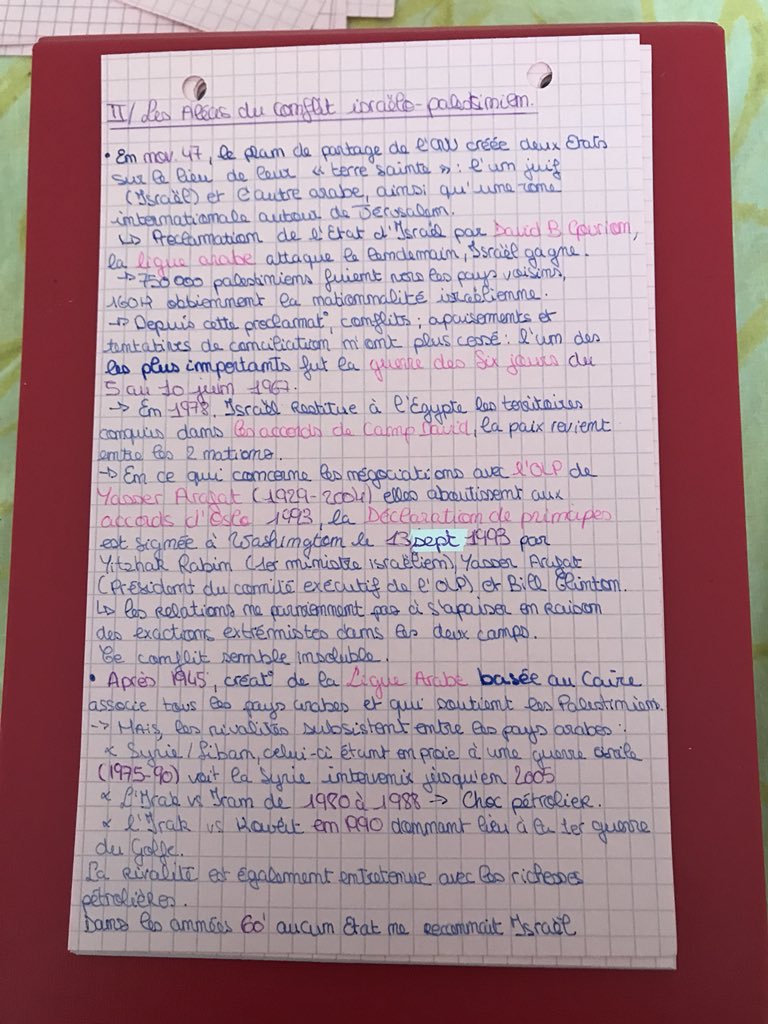 II/ Les Aléas du conflit israëlo-palestinien.
• En nov. 47, le plan de partage de l'ONU créée deux Etats
sur le lieu de leur « terre sainte » : l'un juif
(Israël) et l'autre arabe, ainsi qu'une zone
internationale autour de Jérusalem.
↳ Proclamation de l'Etat d'Israël par David B. Gourion,
la ligue arabe attaque le lendemain, Israël gagne.
→ 750 000 palestiniens fuient vers les pays voisins,
160 000 obtiennent la nationnalité israëlienne.
→ Depuis cette proclamat°, conflits, apaisements et
tentatives de conciliation n'ont plus cessé : l'un des
les plus importants fut la guerre des Six jours du
5 au 10 juin 1967.
→ En 1978, Israël Restitue à l'Egypte les territoires
conquis dans les accords de Camp David, la paix revient
entre les 2 nations.
→ En ce qui concerne les négociations avec l'OLP de
Yasser Arafat (1929-2004) elles aboutissent aux
accords d'Oslo 1993, la Déclaration de principes
est signée à Washington le 13 sept 1993 par
Yitzhak Rabin (1er ministre israëlien), Yasser Arafat
(Président du comité exécutif de l'OLP) et Bill Clinton.
↳ les relations ne parviennent pas à s'apaiser en raison
des exactions extrémistes dans les deux camps.
Ce conflit semble insoluble.
• Après 1945, créat° de la Ligue Arabe basée au Caire
associe tous les pays arabes et qui soutient les Palestiniens.
→ Mais, les rivalités subsistent entre les pays arabes :
∝ Syrie/Liban, celui-ci étant en proie à une guerre civile
(1975-90) voit la Syrie intervenir jusqu'en 2005
∝ L'Irak vs Iran de 1980 à 1988 → Choc pétrolier.
∝ l'Irak vs Koweït en 1990 donnant lieu à la 1er guerre
du Golfe.
La rivalité est également entretenue avec les richesses
pétrolières.
Dans les années 60' aucun Etat ne reconnait Israël